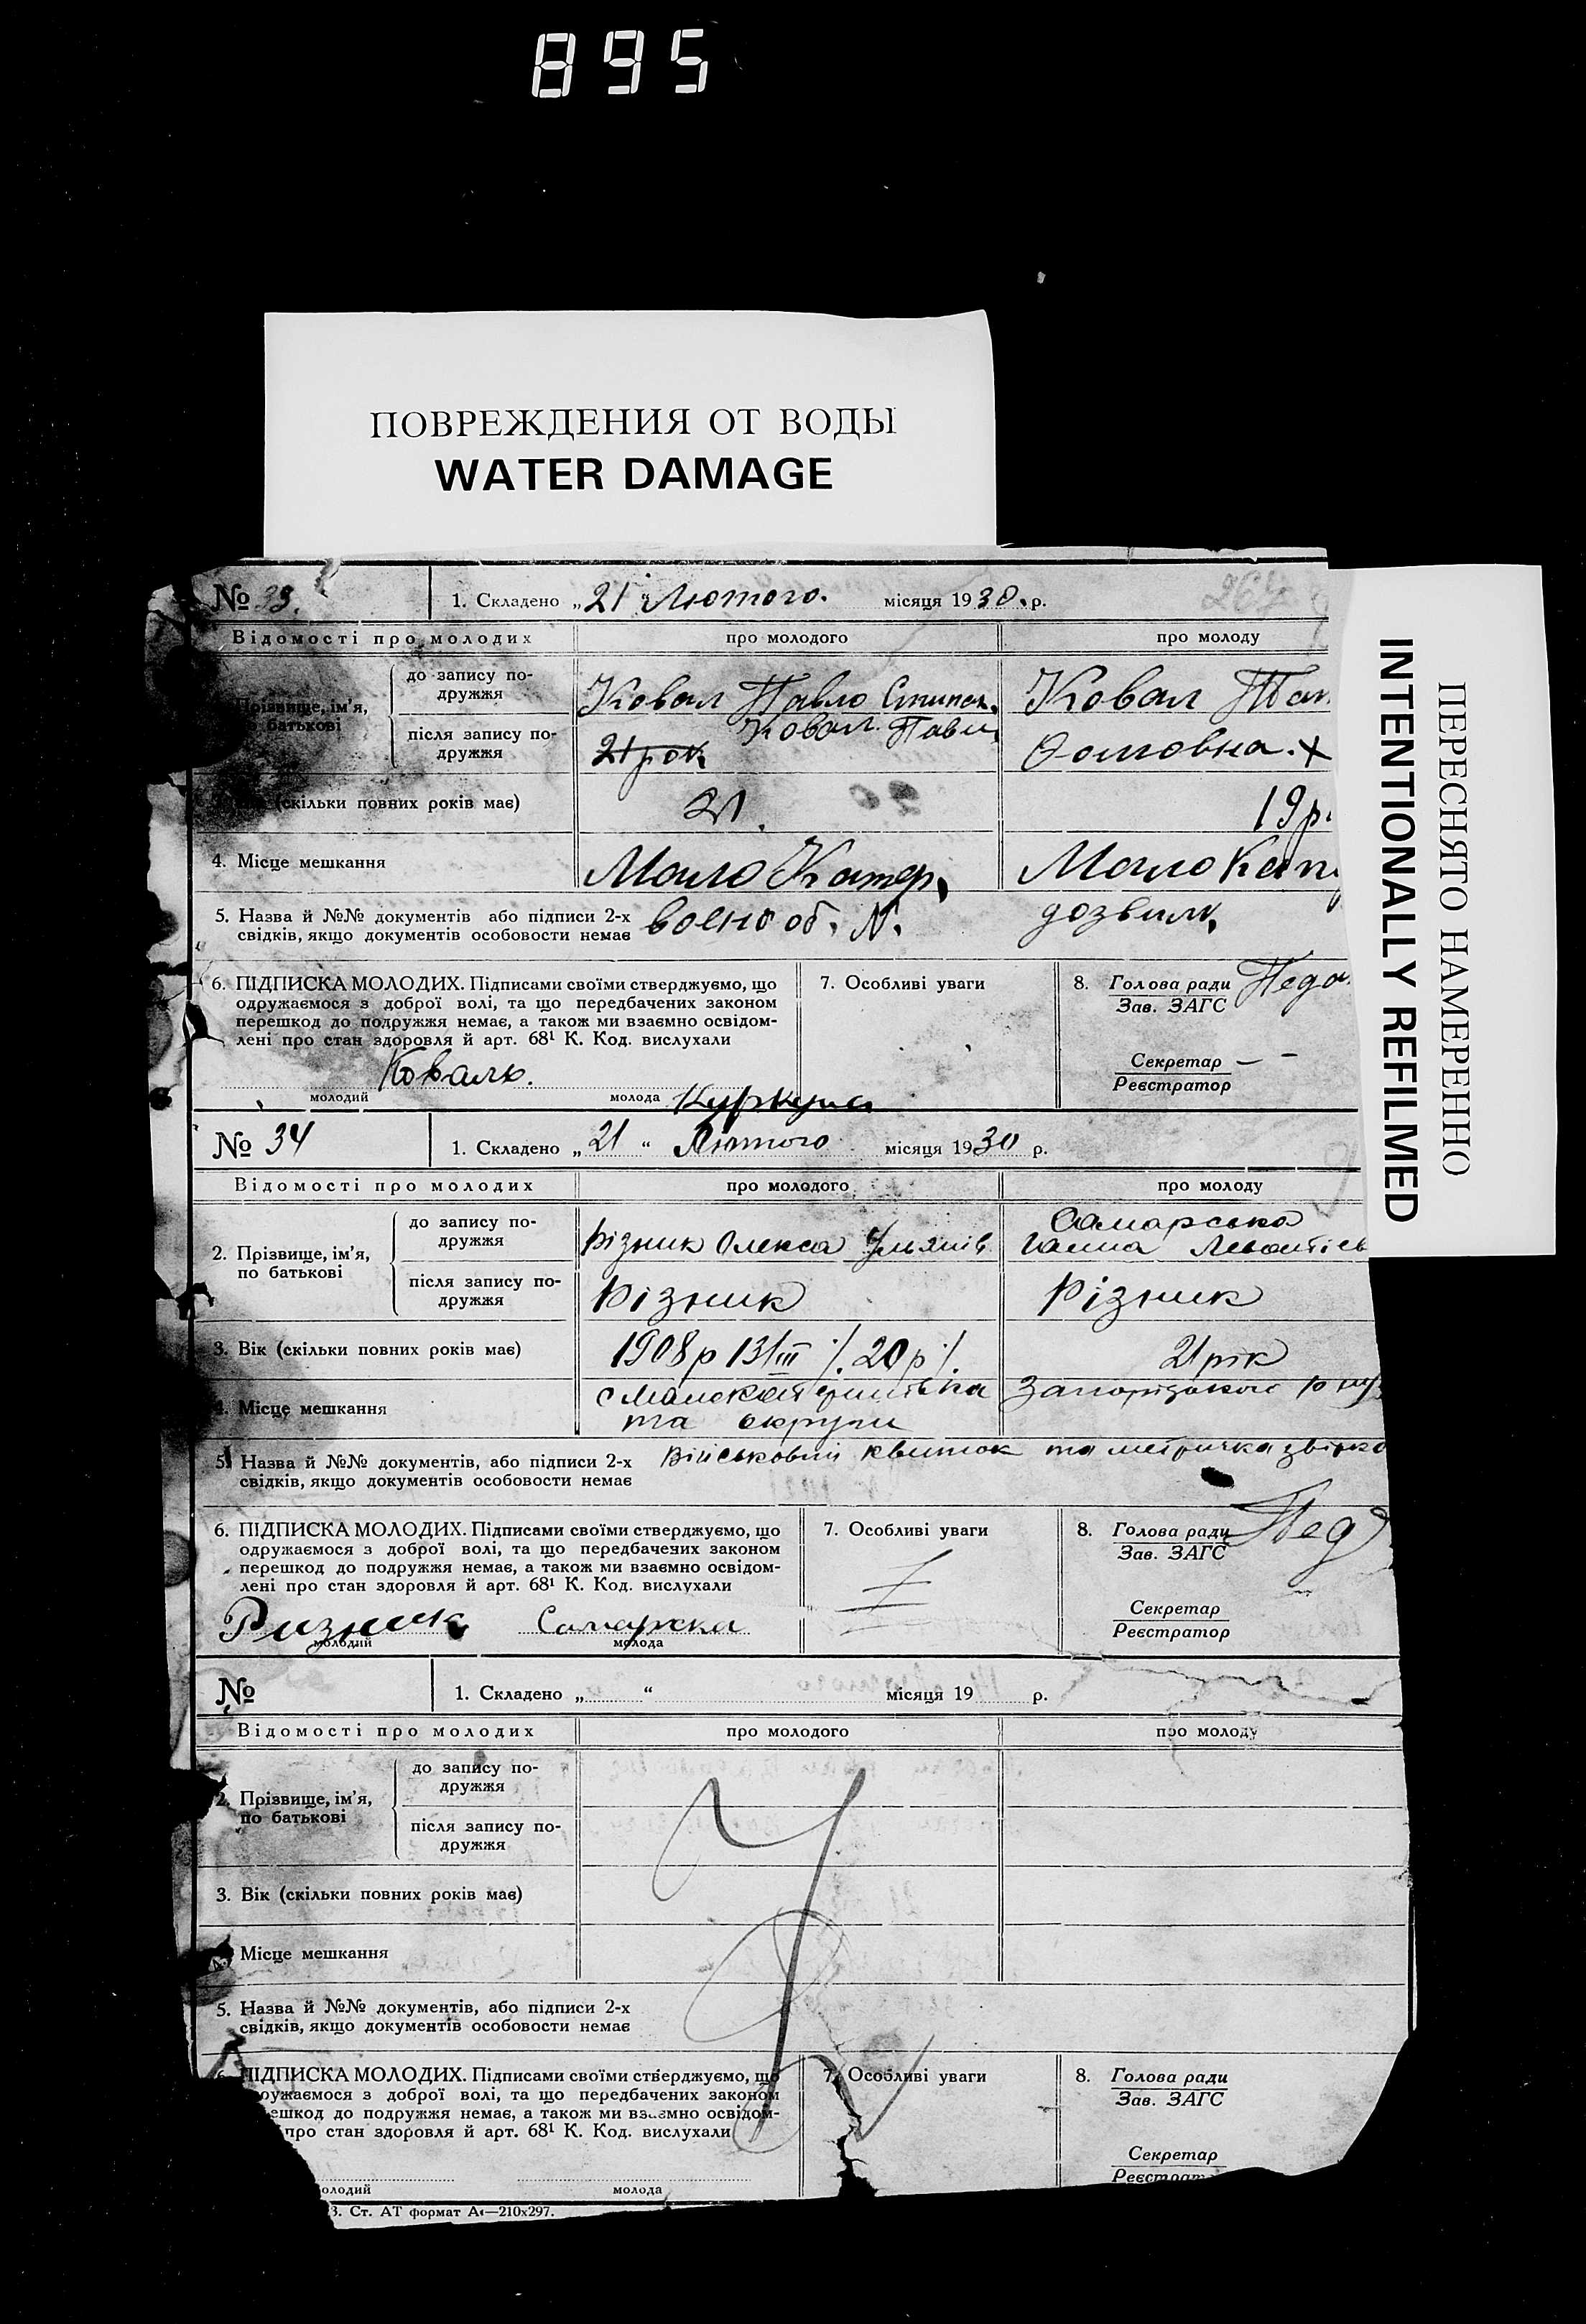 895
ПОВРЕЖДЕНИЯ ОТ ВОДЫ
WATER DAMAGE
ПЕРЕСНЯТО НАМЕРЕННО
INTENTIONALLY REFILMED
№ 33. 1. Складено „21" Лютого. місяця 1930. р.
Відомості про молодих про молодого про молоду
Прізвище, ім'я, по батькові
до запису подружжя Ковал Павло Коваль
після запису по-
дружжя 21 рок Ковал.
(скільки повних років має) 21. 19 р.
4. Місце мешкання Мало Катер.
5. Назва й №№ документів або підписи 2-х воєно об. N. дозвил.
свідків, якщо документів особовости немає
6. ПІДПИСКА МОЛОДИХ. Підписами своїми стверджуємо, що 7. Особливі уваги 8. Голова ради
одружаємося з доброї волі, та що передбачених законом Зав. ЗАГС
перешкод до подружжя немає, а також ми взаємно освідом-
лені про стан здоровля й арт. 68¹ К. Код. вислухали
Секретар
Коваль. Реєстратор
молодий молода
№ 34 1. Складено „ 21 “ Лютого місяця 1930 р.
Відомості про молодих про молодого про молоду
до запису по- Самарська
дружжя Різник Олекса Ганна
2. Прізвище, ім'я,
по батькові
після запису по- Різник Різник
дружжя
3. Вік (скільки повних років має) 1908 р 13/III /. 20 р /. 21 рік
4. Місце мешкання та округи
5. Назва й №№ документів, або підписи 2-х Військовий квиток та метричка
свідків, якщо документів особовости немає
6. ПІДПИСКА МОЛОДИХ. Підписами своїми стверджуємо, що 7. Особливі уваги 8. Голова ради
одружаємося з доброї волі, та що передбачених законом Зав. ЗАГС
перешкод до подружжя немає, а також ми взаємно освідом-
лені про стан здоровля й арт. 68¹ К. Код. вислухали
Секретар
Ризник Самарска Реєстратор
молодий молода
№ 1. Складено „ “ місяця 19 р.
Відомості про молодих про молодого про молоду
до запису по-
дружжя
2. Прізвище, ім'я,
по батькові
після запису по-
дружжя
3. Вік (скільки повних років має)
4. Місце мешкання
5. Назва й №№ документів, або підписи 2-х
свідків, якщо документів особовости немає
6. ПІДПИСКА МОЛОДИХ. Підписами своїми стверджуємо, що 7. Особливі уваги 8. Голова ради
ружаємося з доброї волі, та що передбачених законом Зав. ЗАГС
ешкод до подружжя немає, а також ми взаємно освідом-
про стан здоровля й арт. 68¹ К. Код. вислухали
Секретар
Реєстрат
олодий молода
З. Ст. АТ формат А4—210х297.